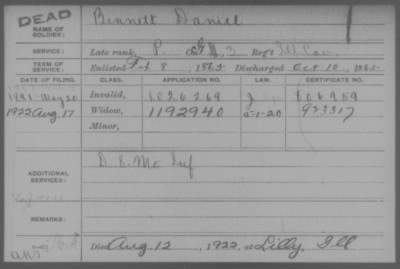 DEAD
NAME OF SOLDIER: Bennett Daniel
SERVICE: Late rank, P. 3 Reg't Ill Cav.
TERM OF SERVICE: Enlisted Feb 8, 1865 Discharged Oct 10, 1865
DATE OF FILING. CLASS. APPLICATION NO. LAW. CERTIFICATE NO.
1891 May 20 Invalid, 1026269 806959
1922 Aug 17 Widow, 1192940 5-1-20 923317
Minor,
ADDITIONAL SERVICES: D 8. Mo Inf
REMARKS:
Died Aug. 12, 1922, at Lilly, Ill